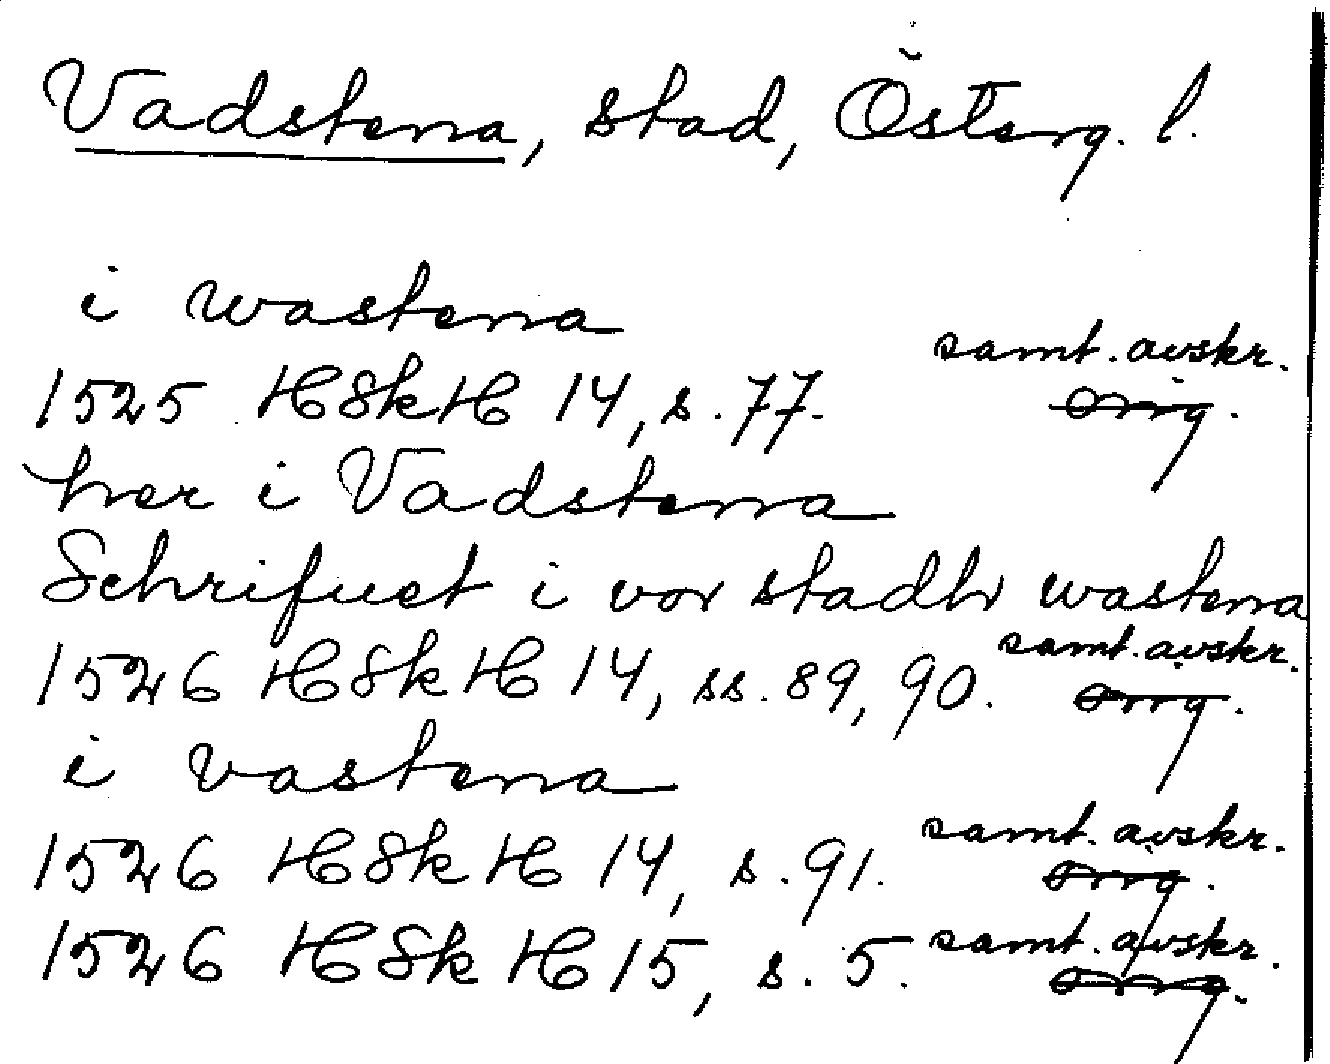 Vadstena, stad, Österg. l.
i wastena
samt. avskr.
1525 HSkH 14, s. 77. orig.
her i Vadstena
Schrifuet i vor stadh wastena
samt. avskr.
1526 HSkH 14, ss. 89, 90. orig.
i vastena
samt. avskr.
1526 HSkH 14, s. 91. orig.
samt. avskr.
1526 HSkH 15, s. 5. orig.